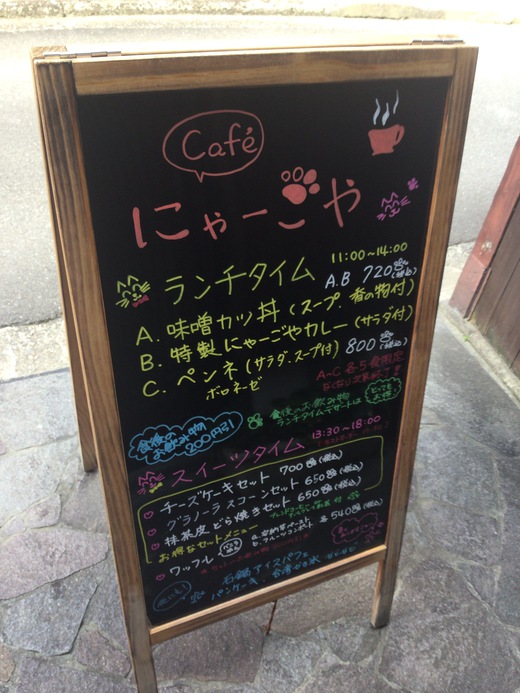 Café
にゃーごや
ランチタイム 11:00~14:00
A.B 720 (税込)
A. 味噌カツ丼 (スープ 香の物付)
B. 特製にゃーごやカレー (サラダ付)
C. ペンネ (サラダ.スープ付) 800 (税込)
ボロネーゼ
A~C 各5食限定
なくなり次第終了!!
食後のお飲み物
ランチタイムデザートは
とっても
お得!
食後の
お飲み物
200円!
スイーツタイム 13:30~18:00
チーズケーキセット 700 (税込)
グラノーラ スコーンセット 650 (税込)
抹茶皮 どら焼きセット 650 (税込)
お得なセットメニュー
ワッフル
各 540 (税込)
石鍋アイスパフェ
パンケーキ、台湾かき氷